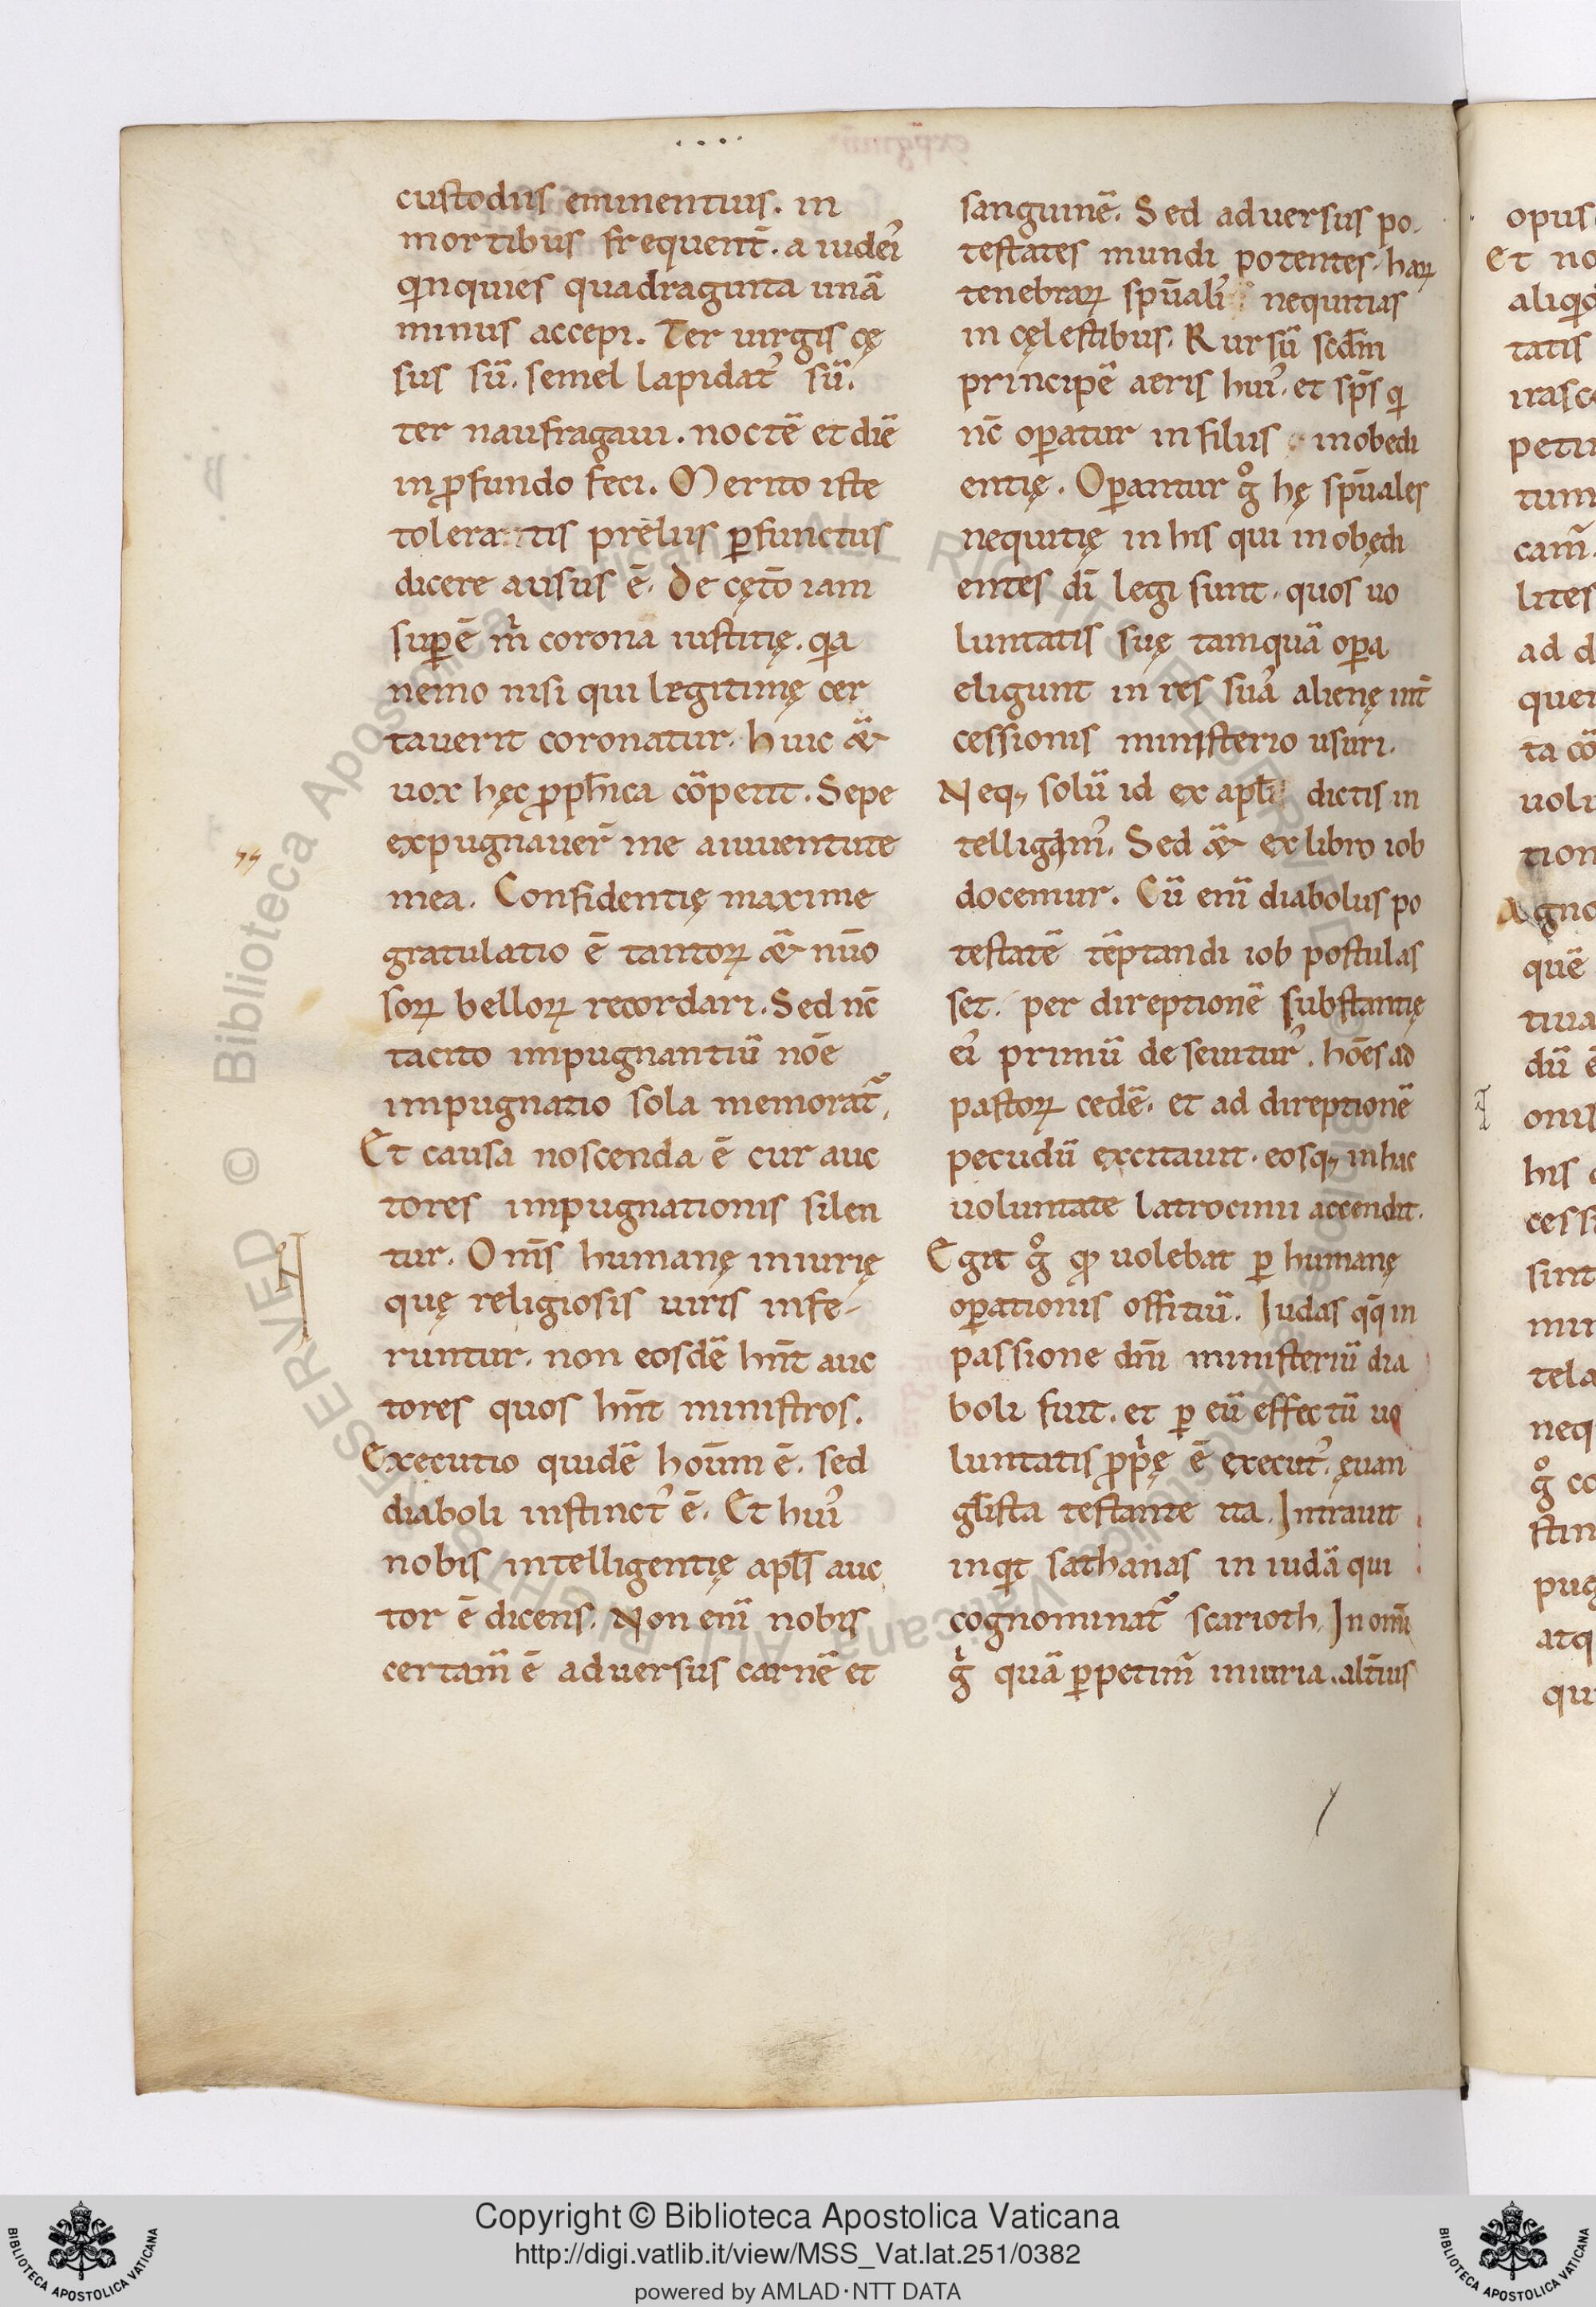 custodiis eminentius. in
mortibus frequent̄. a iudeis
qinquies quadraginta unā
minus accepi. Ter uirgis cę
sus sū. semel lapidat᾽ sū.
ter naufragaui. noctē et diē
in ꝓfundo feci. Merito iste
tolerantis preliis ꝑfunctus
dicere ausus ē. De cętō iam
suꝑē m̄ corona iustitię. qia
nemo nisi qui legitimę cer
tauerit coronatur. huic &̄
uox hęc ꝓph̄ica cōpetit. Sepe
expugnauer̄ me a iuuentute
mea. Confidentię maxime
gratulatio ē tantoꝝ &̄ nūo
soꝝ belloꝝ recordari. Sed nc̄
tacito impugnantiū nōe
impugnatio sola memorat᾽.
Et causa noscenda ē cur auc
tores impugnationis silen
tur. Om̄s humanę iniurię
quę religiosis uiris infe-
runtur. non eosdē hn̄t auc
tores quos hn̄t ministros.
Executio quidē hoūm ē. sed
diaboli instinct᾽ ē. Et hui᾽
nobis intelligentię apl̄s auc
tor ē dicens. Non eni̅ nobis
certam̄ ē aduersus carnē et
sanguinē. Sed aduersus po.
testates mundi potentes. haꝝ
tenebraꝝ spūali᾽ nequitias
in cęlestibus. Rursū scdm̄
principē aeris hui᾽. et sps̄ qi
nc̄ oꝑatur in filiis inobedi
entię. Oꝑantur gͦ hę spūales
nequitię in his qui inobędi
entes dī legi sunt. quos uo
luntatis suę tamquā oꝑa
eligunt in res sua᾽ alienę int̄
cessionis ministerio usuri.
Neqꝫ solū id ex apl̄i dictis in
telligam᾽. Sed &̄ ex libro iob
docemur. Cū eni̅ diabolus po
testatē tēptandi iob postulas
set. per direptionē substantię
ei᾽ primū deseuitur᾽. hōes ad
pastoꝝ cedē. et ad direptionē
pecudū excitauit. eosqꝫ in hac
uoluntate latrocinii accendit.
Egit gͦ qđ uolebat ꝑ humanę
oꝑationis offitiū. Iudas qq̄ in
passione dn̄i ministeriū dia
boli fuit. et ꝑ eū effectū uo
luntatis ꝓpⁱę ē execut᾽. ęuan
gl̄ista testante ita. Intrauit
inqit sathanas in iudā qui
cognominat᾽ scarioth. In omi̅
gⁱ quā ꝑpetim̄ iniuria. alt̄ius
Copyright © Biblioteca Apostolica Vaticana
http://digi.vatlib.it/view/MSS_Vat.lat.251/0382
powered by AMLAD·NTT DATA